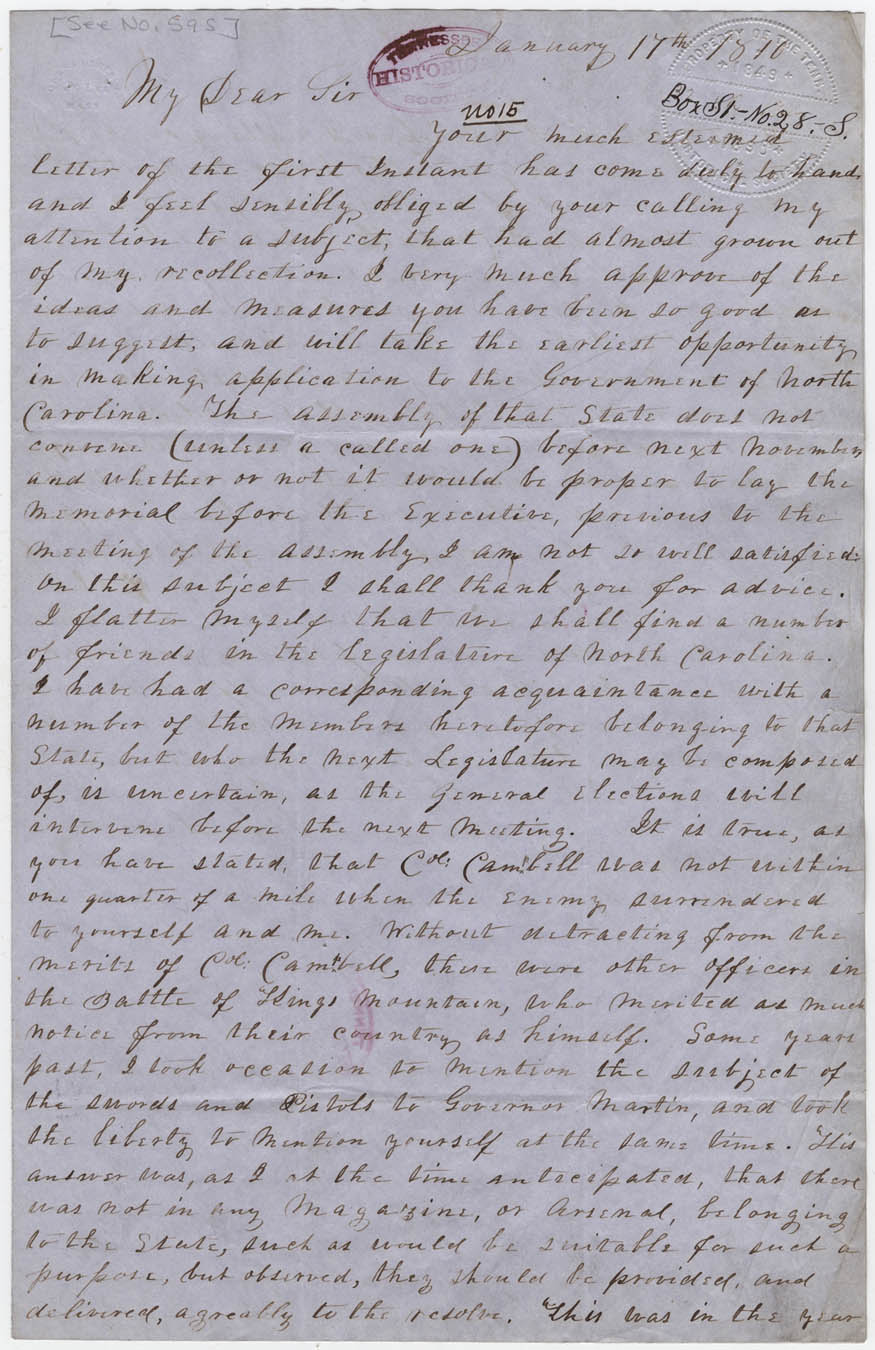 [See No. 595]
January 17th 1810
TENNESSEE
HISTORICAL
SOCIETY
PROPERTY OF THE TENN.
1849
My Dear Sir
No 15
Box S1.-No. 28.-S.
Your much esteemed
letter of the first Instant has come duly to hand,
and I feel sensibly obliged by your calling my
attention to a subject, that had almost grown out
of my recollection. I very much approve of the
ideas and measures you have been so good as
to suggest, and will take the earliest opportunity
in making application to the Government of North
Carolina. The assembly of that State does not
convene (unless a called one) before next November,
and whether or not it would be proper to lay the
Memorial before the Executive, previous to the
meeting of the assembly, I am not so well satisfied:
On this subject I shall thank you for advice.
I flatter myself that we shall find a number
of friends in the legislature of North Carolina.
I have had a corresponding acquaintance with a
number of the members heretofore belonging to that
State, but who the next Legislature may be composed
of, is uncertain, as the General Elections will
intervene before the next Meeting. It is true, as
you have stated, that Col: Cambell was not within
one quarter of a mile when the Enemy surrendered
to yourself and me. Without detracting from the
merits of Col: Cambell, there were other officers in
the Battle of Kings Mountain, who merited as much
notice from their country as himself. Some years
past, I took occasion to mention the subject of
the swords and Pistols to Governor Martin, and took
the liberty to mention yourself at the same time. His
answer was, as I at the time antecipated, that there
was not in any Magazine, or Arsenal, belonging
to the State, such as would be suitable for such a
purpose, but observed, they should be provided, and
delivered, agreally to the resolve. This was in the year